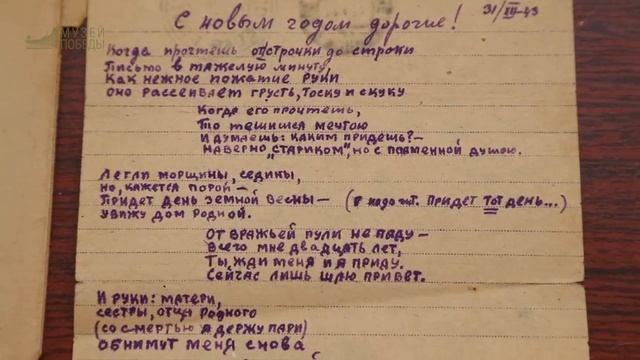 МУЗЕЙ
ПОБЕДЫ
С новым годом дорогие! 31/XII-43
Когда прочтешь от строчки до строки
Письмо в тяжелую минуту,
Как нежное пожатие руки
Оно рассеивает грусть, тоску и скуку
Когда его прочтешь,
То тешишся мечтою
И думаешь: каким придешь? –
Наверно „стариком", но с пламенной душою.
Легли морщины, седины,
Но, кажется порой –
Придет день земной весны – придет тот день...)
Увижу дом родной.
От вражьей пули не паду –
Всего мне двадцать лет,
Ты, жди меня и я приду.
Сейчас лишь шлю привет.
И руки: матери,
сестры, отца родного
(со смертью я держу пари)
обнимут меня снова